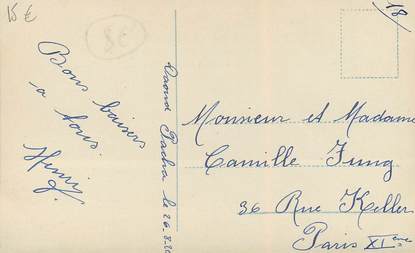 15 €
SC
18
Bons baisers
à tous.
Henry
Daoud Pacha le 26.8.
Monsieur et Madame
Camille Jung
36 Rue Keller
Paris XIème